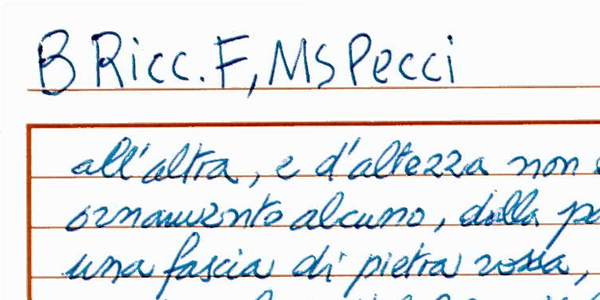 B Ricc. F, Ms Pecci
all'altra, e d'altezza non
ornamento alcuno, dalla
una fascia di pietra rossa,